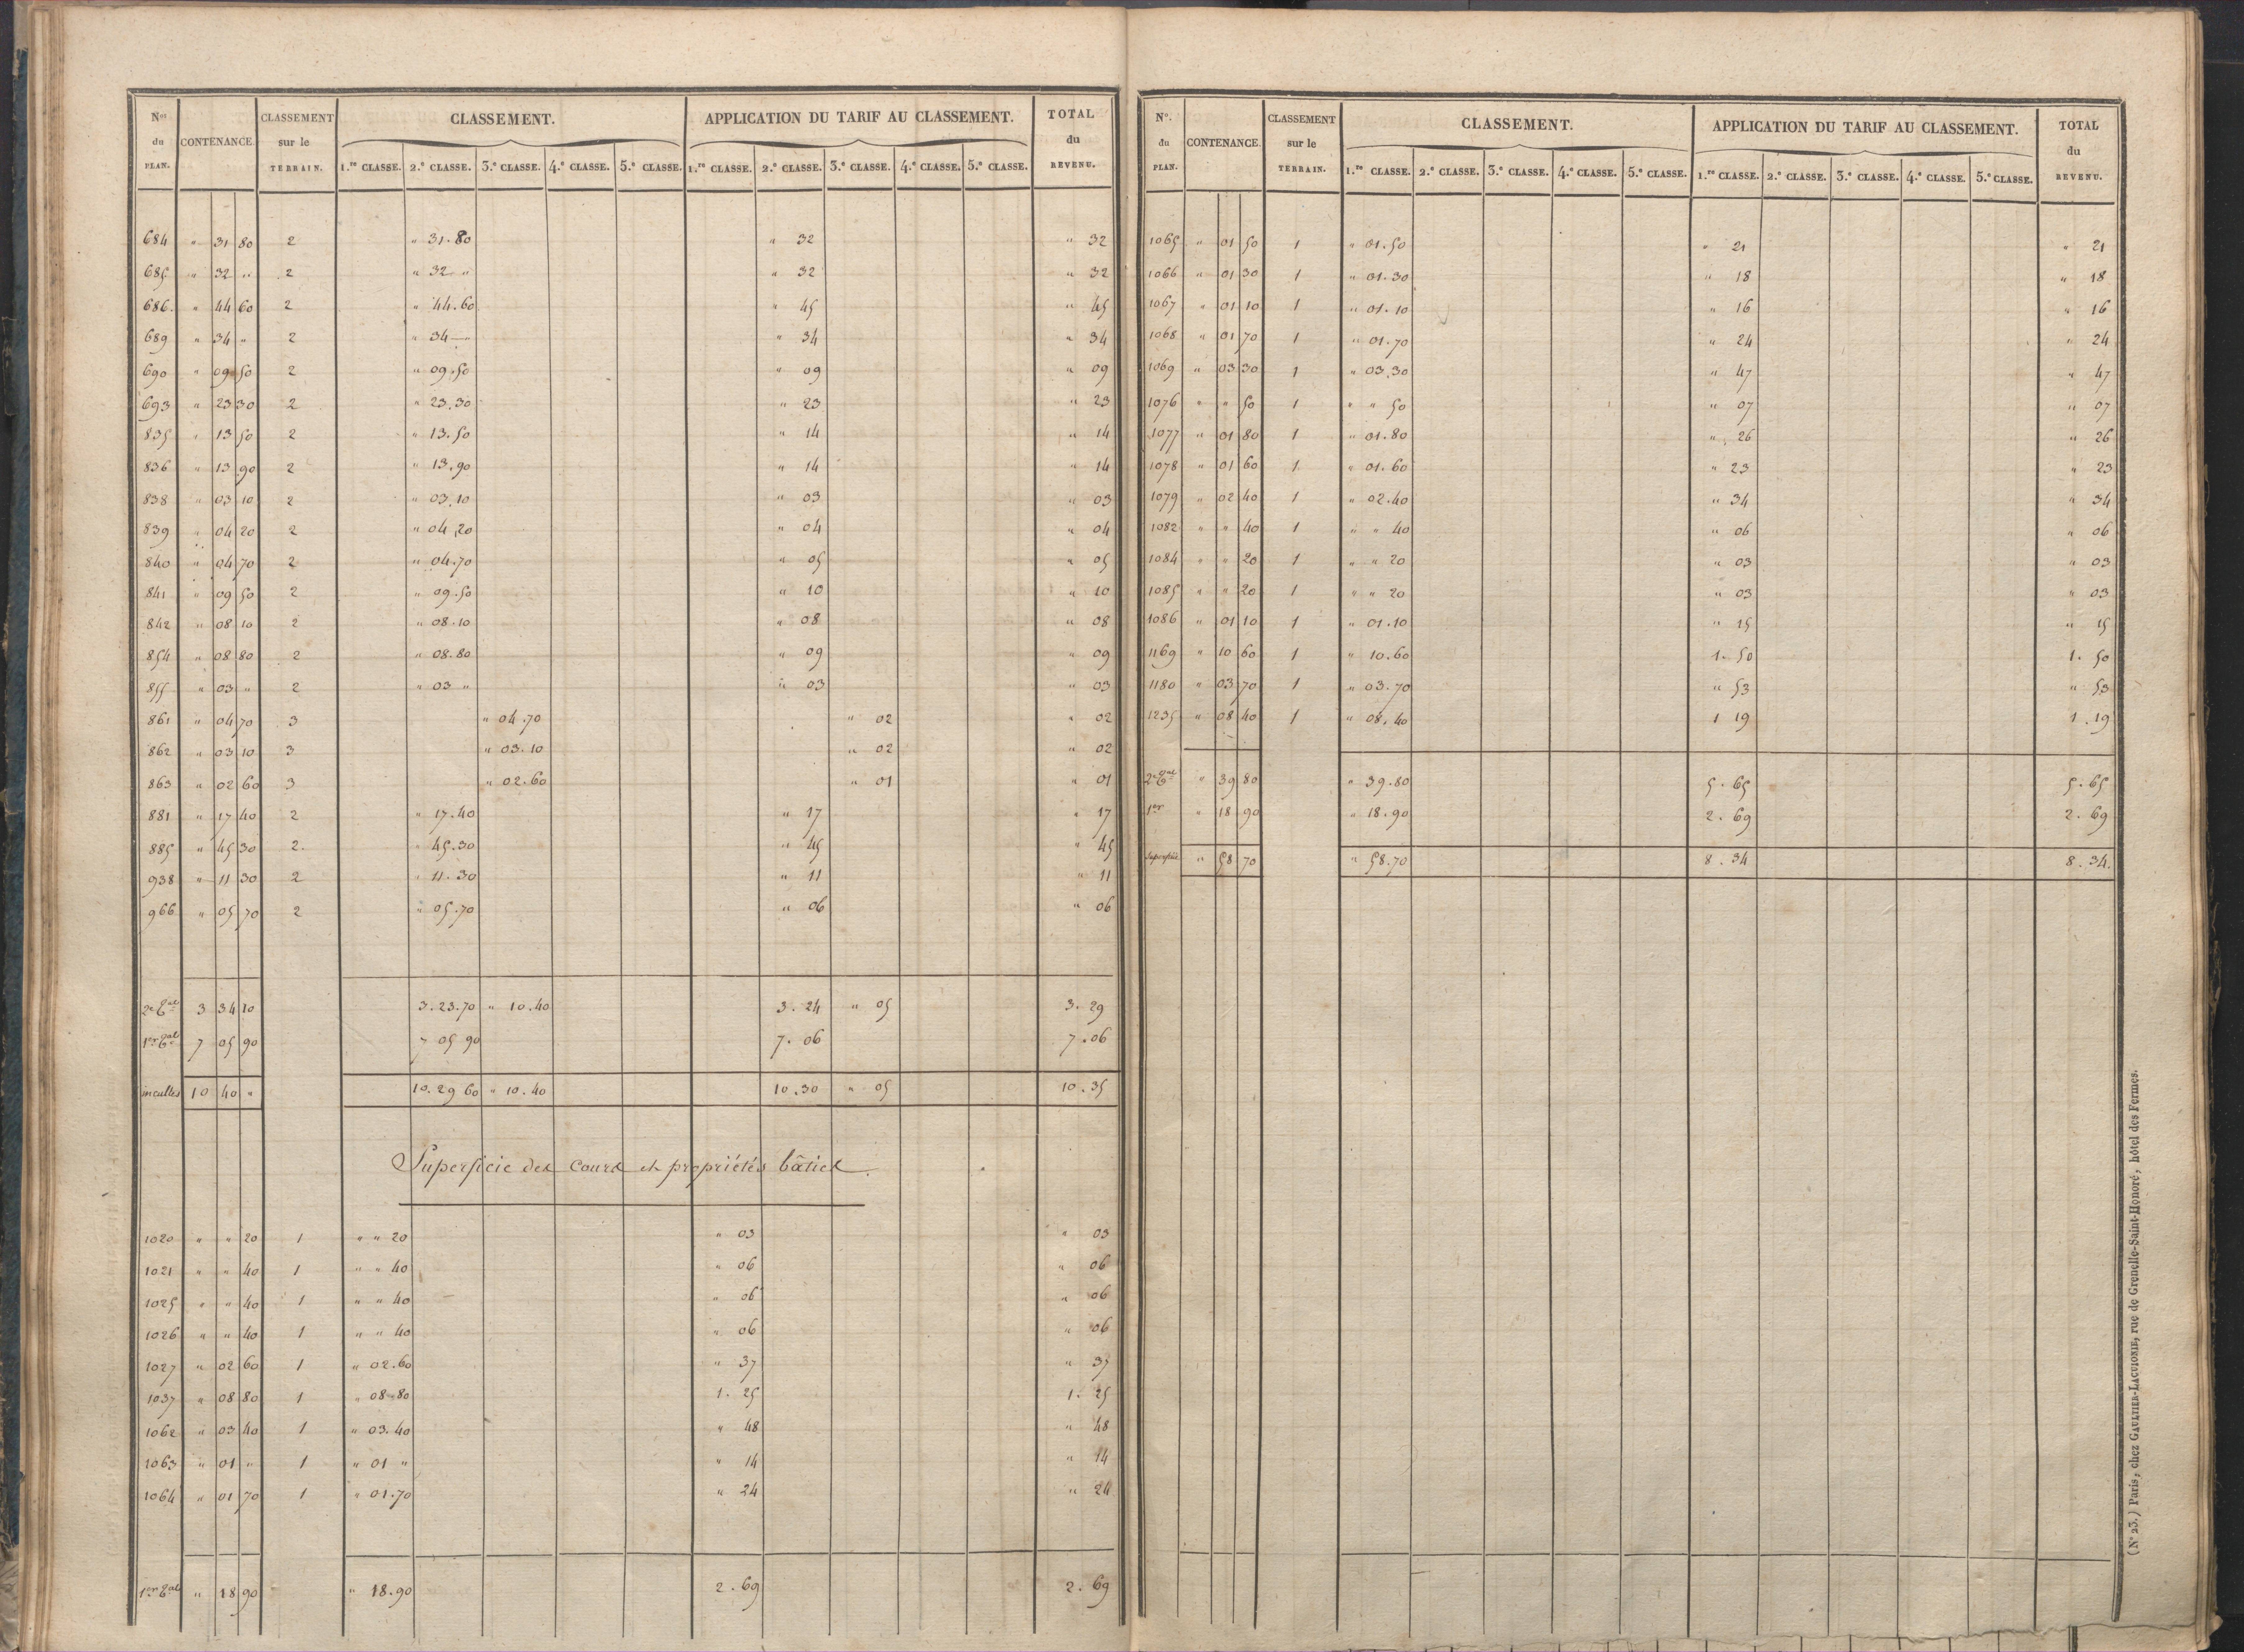 N.os du PLAN. CONTENANCE. CLASSEMENT sur le TERRAIN. CLASSEMENT. APPLICATION DU TARIF AU CLASSEMENT. TOTAL du REVENU.
1.re CLASSE. 2.e CLASSE. 3.e CLASSE. 4.e CLASSE. 5.e CLASSE. 1.re CLASSE. 2.e CLASSE. 3.e CLASSE. 4.e CLASSE. 5.e CLASSE.
684 " 31 80 2 " 31.80 " 32 " 32
685 " 32 " 2 " 32 " " 32 " 32
686. " 44 60 2 " 44.60 " 45 " 45
689 " 34 " 2 " 34 " " 34 " 34
690 " 09 50 2 " 09.50 " 09 " 09
693 " 23 30 2 " 23.30 " 23 " 23
835 " 13 50 2 " 13.50 " 14 " 14
836 " 13 90 2 " 13.90 " 14 " 14
838 " 03 10 2 " 03.10 " 03 " 03
839 " 04 20 2 " 04.20 " 04 " 04
840 " 04 70 2 " 04.70 " 05 " 05
841 " 09 50 2 " 09.50 " 10 " 10
842 " 08 10 2 " 08.10 " 08 " 08
854 " 08 80 2 " 08.80 " 09 " 09
855 " 03 " 2 " 03 " " 03 " 03
861 " 04 70 3 " 04.70 " 02 " 02
862 " 03 10 3 " 03.10 " 02 " 02
863 " 02 60 3 " 02.60 " 01 " 01
881 " 17 40 2 " 17.40 " 17 " 17
885 " 45 30 2. " 45.30 " 45 " 45
938 " 11 30 2 " 11.30 " 11 " 11
966 " 05 70 2 " 05.70 " 06 " 06
2e Tal 3 34 10 3.23.70 " 10.40 3. 24 " 05 3. 29
1er Tal 7 05 90 7 05 90 7. 06 7.06
incultes 10 40 " 10.29 60 " 10.40 10.30 " 05 10.35
Superficie des cours et propriétés bâties.
1020 " " 20 1 " " 20 " 03 " 03
1021 " " 40 1 " " 40 " 06 " 06
1025 " " 40 1 " " 40 " 06 " 06
1026 " " 40 1 " " 40 " 06 " 06
1027 " 02 60 1 " 02.60 " 37 " 37
1037 " 08 80 1 " 08.80 1. 25 1. 25
1062 " 03 40 1 " 03.40 " 48 " 48
1063 " 01 " 1 " 01 " " 14 " 14
1064 " 01 70 1 " 01.70 " 24 " 24
1er Tal " 18 90 " 18.90 2.69 2.69
N.o du PLAN. CONTENANCE. CLASSEMENT sur le TERRAIN. CLASSEMENT. APPLICATION DU TARIF AU CLASSEMENT. TOTAL du REVENU.
1.re CLASSE. 2.e CLASSE. 3.e CLASSE. 4.e CLASSE. 5.e CLASSE. 1.re CLASSE. 2.e CLASSE. 3.e CLASSE. 4.e CLASSE. 5.e CLASSE.
1065 " 01 50 1 " 01.50 " 21 " 21
1066 " 01 30 1 " 01.30 " 18 " 18
1067 " 01 10 1 " 01.10 " 16 " 16
1068 " 01 70 1 " 01.70 " 24 " 24
1069 " 03 30 1 " 03.30 " 47 " 47
1076 " " 50 1 " " 50 " 07 " 07
1077 " 01 80 1 " 01.80 " 26 " 26
1078 " 01 60 1 " 01.60 " 23 " 23
1079 " 02 40 1 " 02.40 " 34 " 34
1082 " " 40 1 " " 40 " 06 " 06
1084 " " 20 1 " " 20 " 03 " 03
1085 " " 20 1 " " 20 " 03 " 03
1086 " 01 10 1 " 01.10 " 15 " 15
1169 " 10 60 1 " 10.60 1. 50 1. 50
1180 " 03 70 1 " 03.70 " 53 " 53
1235 " 08 40 1 " 08.40 1 19 1.19
2e Tal " 39 80 " 39.80 5.65 5.65
1er " 18 90 " 18.90 2.69 2.69
Superficie " 58 70 " 58.70 8.34 8.34.
(N° 23.) Paris, chez GAULTIER-LAGUIONIE, rue de Grenelle-Saint-Honoré, hôtel des Fermes.